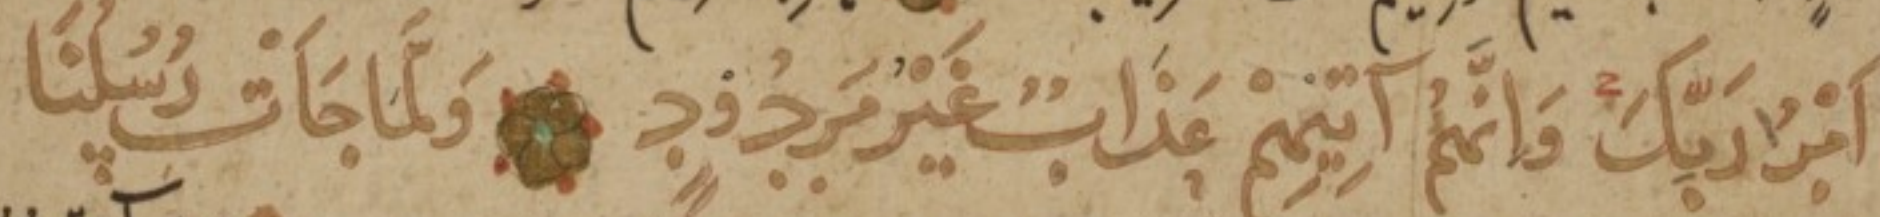 اَمْرُ رَبِّكَ وَاِنَّهُمْ آتِيهِمْ عَذَابٌ غَيْرُ مَرْدُودٍ وَلَمَّا جَاَتْ رُسُلُنَا